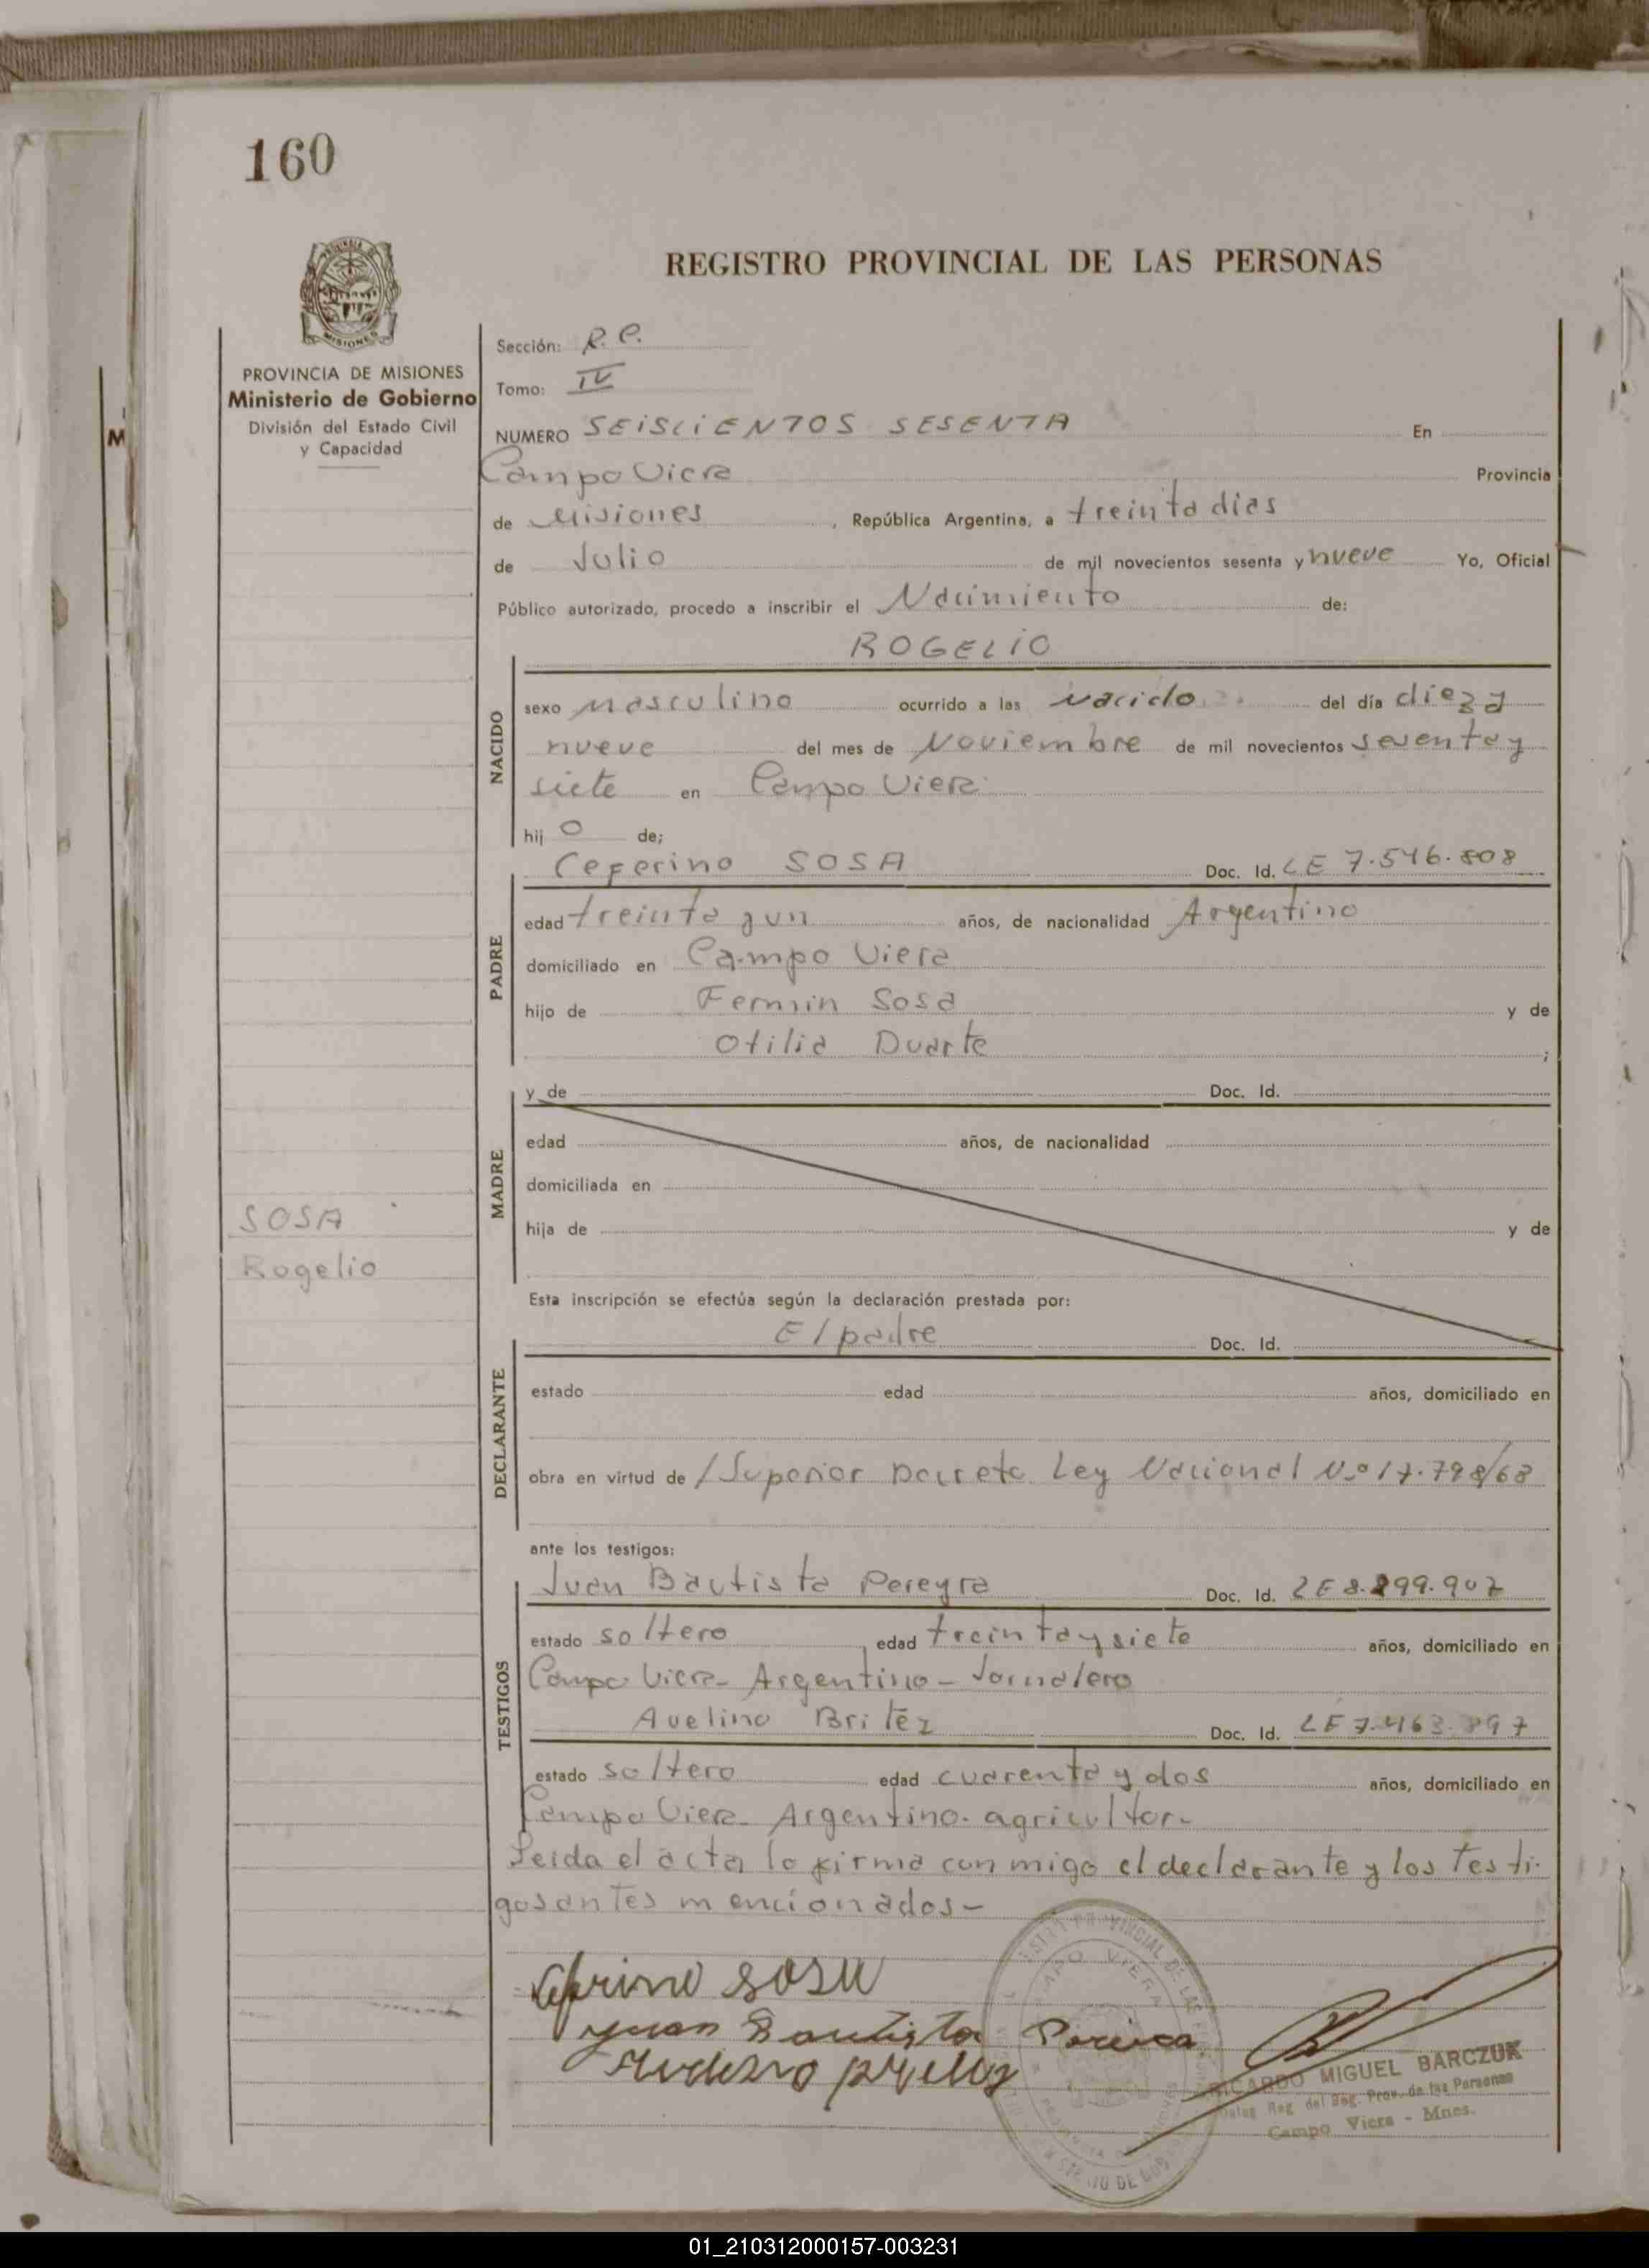 160
REGISTRO PROVINCIAL DE LAS PERSONAS
PROVINCIA DE MISIONES
Ministerio de Gobierno
División del Estado Civil
y Capacidad
Sección: R. C.
Tomo: IV
NUMERO SEISCIENTOS SESENTA En
Campo Viera Provincia
de Misiones, República Argentina, a treinta dias
de Julio de mil novecientos sesenta y nueve Yo, Oficial
Público autorizado, procedo a inscribir el Nacimiento de:
ROGELIO
NACIDO
sexo masculino ocurrido a las nacido del día diez y
nueve del mes de Noviembre de mil novecientos sesenta y
siete en Campo Viera
hij o de;
PADRE
Ceferino SOSA Doc. Id. LE 7.546.808
edad treinta y un años, de nacionalidad Argentino
domiciliado en Campo Viera
hijo de Fermin Sosa y de
Otilia Duarte ;
MADRE
y de Doc. Id.
edad años, de nacionalidad
domiciliada en
hija de y de
SOSA
Rogelio
Esta inscripción se efectúa según la declaración prestada por:
DECLARANTE
El padre Doc. Id.
estado edad años, domiciliado en
obra en virtud de /Superior Decreto Ley Nacional N.º 17.798/68
ante los testigos:
TESTIGOS
Juan Bautista Pereyra Doc. Id. LE 8.299.907
estado soltero, edad treinta y siete años, domiciliado en
Campo Viera - Argentino - Jornalero
Avelino Britez Doc. Id. LE 7.463.
estado soltero edad cuarenta y dos años, domiciliado en
Campo Viera - Argentino - agricultor -
Leida el acta, la firma con migo el declarante y los testi-
gos antes mencionados -
Seferino SOSA
Juan Bautista
CAMPO VIERA
RICARDO MIGUEL BARCZUK
Deleg. Reg. del Reg. Prov. de las Personas
Campo Viera - Mnes.
01_210312000157-003231